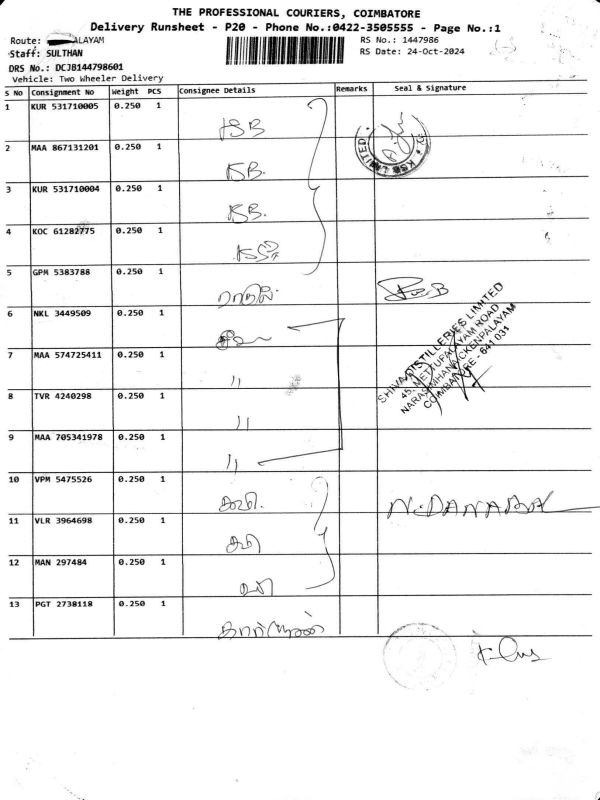 THE PROFESSIONAL COURIERS, COIMBATORE
Delivery Runsheet - P20 - Phone No.:0422-3505555 - Page No.:1
Route: ALAYAM
RS No.: 1447986
Staff: SULTHAN
RS Date: 24-Oct-2024
DRS No.: DCJB144798601
Vehicle: Two Wheeler Delivery
S No Consignment No Weight PCS Consignee Details Remarks Seal & Signature
1 KUR 531710005 0.250 1
KSB
KSB LIMITED
2 MAA 867131201 0.250 1
KSB.
3 KUR 531710004 0.250 1
KSB.
4 KOC 61282775 0.250 1
5 GPM 5383788 0.250 1
6 NKL 3449509 0.250 1
SHIVA DISTILLERIES LIMITED
45, METTUPALAYAM ROAD
NARASIMHANAICKENPALAYAM
COIMBATORE - 641 031
7 MAA 574725411 0.250 1
"
8 TVR 4240298 0.250 1
"
9 MAA 705341978 0.250 1
"
10 VPM 5475526 0.250 1
கவி.
11 VLR 3964698 0.250 1
12 MAN 297484 0.250 1
13 PGT 2738118 0.250 1